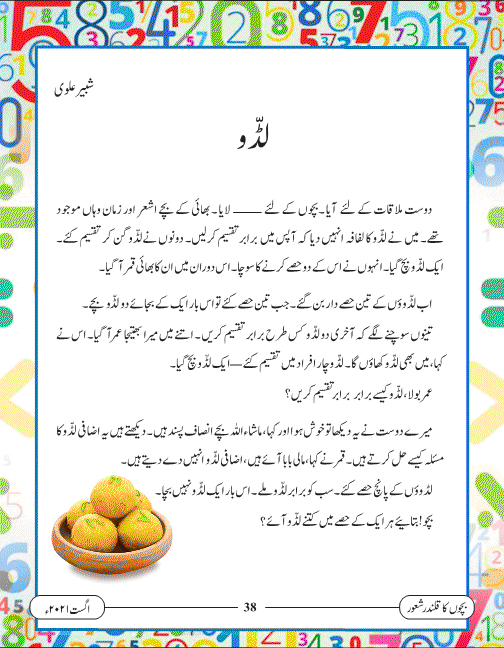 شبیر علوی
لڈّو
دوست ملاقات کے لئے آیا۔ بچوں کے لئے —— لایا۔ بھائی کے بچے اشعر اور زمان وہاں موجود
تھے۔ میں نے لڈّو کا لفافہ انہیں دیا کہ آپس میں برابر تقسیم کرلیں۔ دونوں نے لڈّو گن کر تقسیم کئے۔
ایک لڈّو بچ گیا۔ انہوں نے اس کے دو حصے کرنے کا سوچا۔ اس دوران میں ان کا بھائی قمر آ گیا۔
اب لڈّوؤں کے تین حصے دار بن گئے۔ جب تین حصے کئے تو اس بار ایک کے بجائے دو لڈّو بچے۔
تینوں سوچنے لگے کہ آخری دو لڈّو کس طرح برابر تقسیم کریں۔ اتنے میں میرا بھتیجا عمر آ گیا۔ اس نے
کہا، میں بھی لڈّو کھاؤں گا۔ لڈّو چار افراد میں تقسیم کئے — ایک لڈّو بچ گیا۔
عمر بولا، لڈّو کیسے برابر برابر تقسیم کریں؟
میرے دوست نے یہ دیکھا تو خوش ہوا اور کہا، ماشاء اللہ بچے انصاف پسند ہیں۔ دیکھتے ہیں یہ اضافی لڈّو کا
مسئلہ کیسے حل کرتے ہیں۔ قمر نے کہا، مالی بابا آئے ہیں، اضافی لڈّو انہیں دے دیتے ہیں۔
لڈّوؤں کے پانچ حصے کئے۔ سب کو برابر لڈّو ملے۔ اس بار ایک لڈّو نہیں بچا۔
بچو! بتایئے ہر ایک کے حصے میں کتنے لڈّو آئے؟
بچوں کا قلندر شعور
38
اگست ۲۰۲۱ء